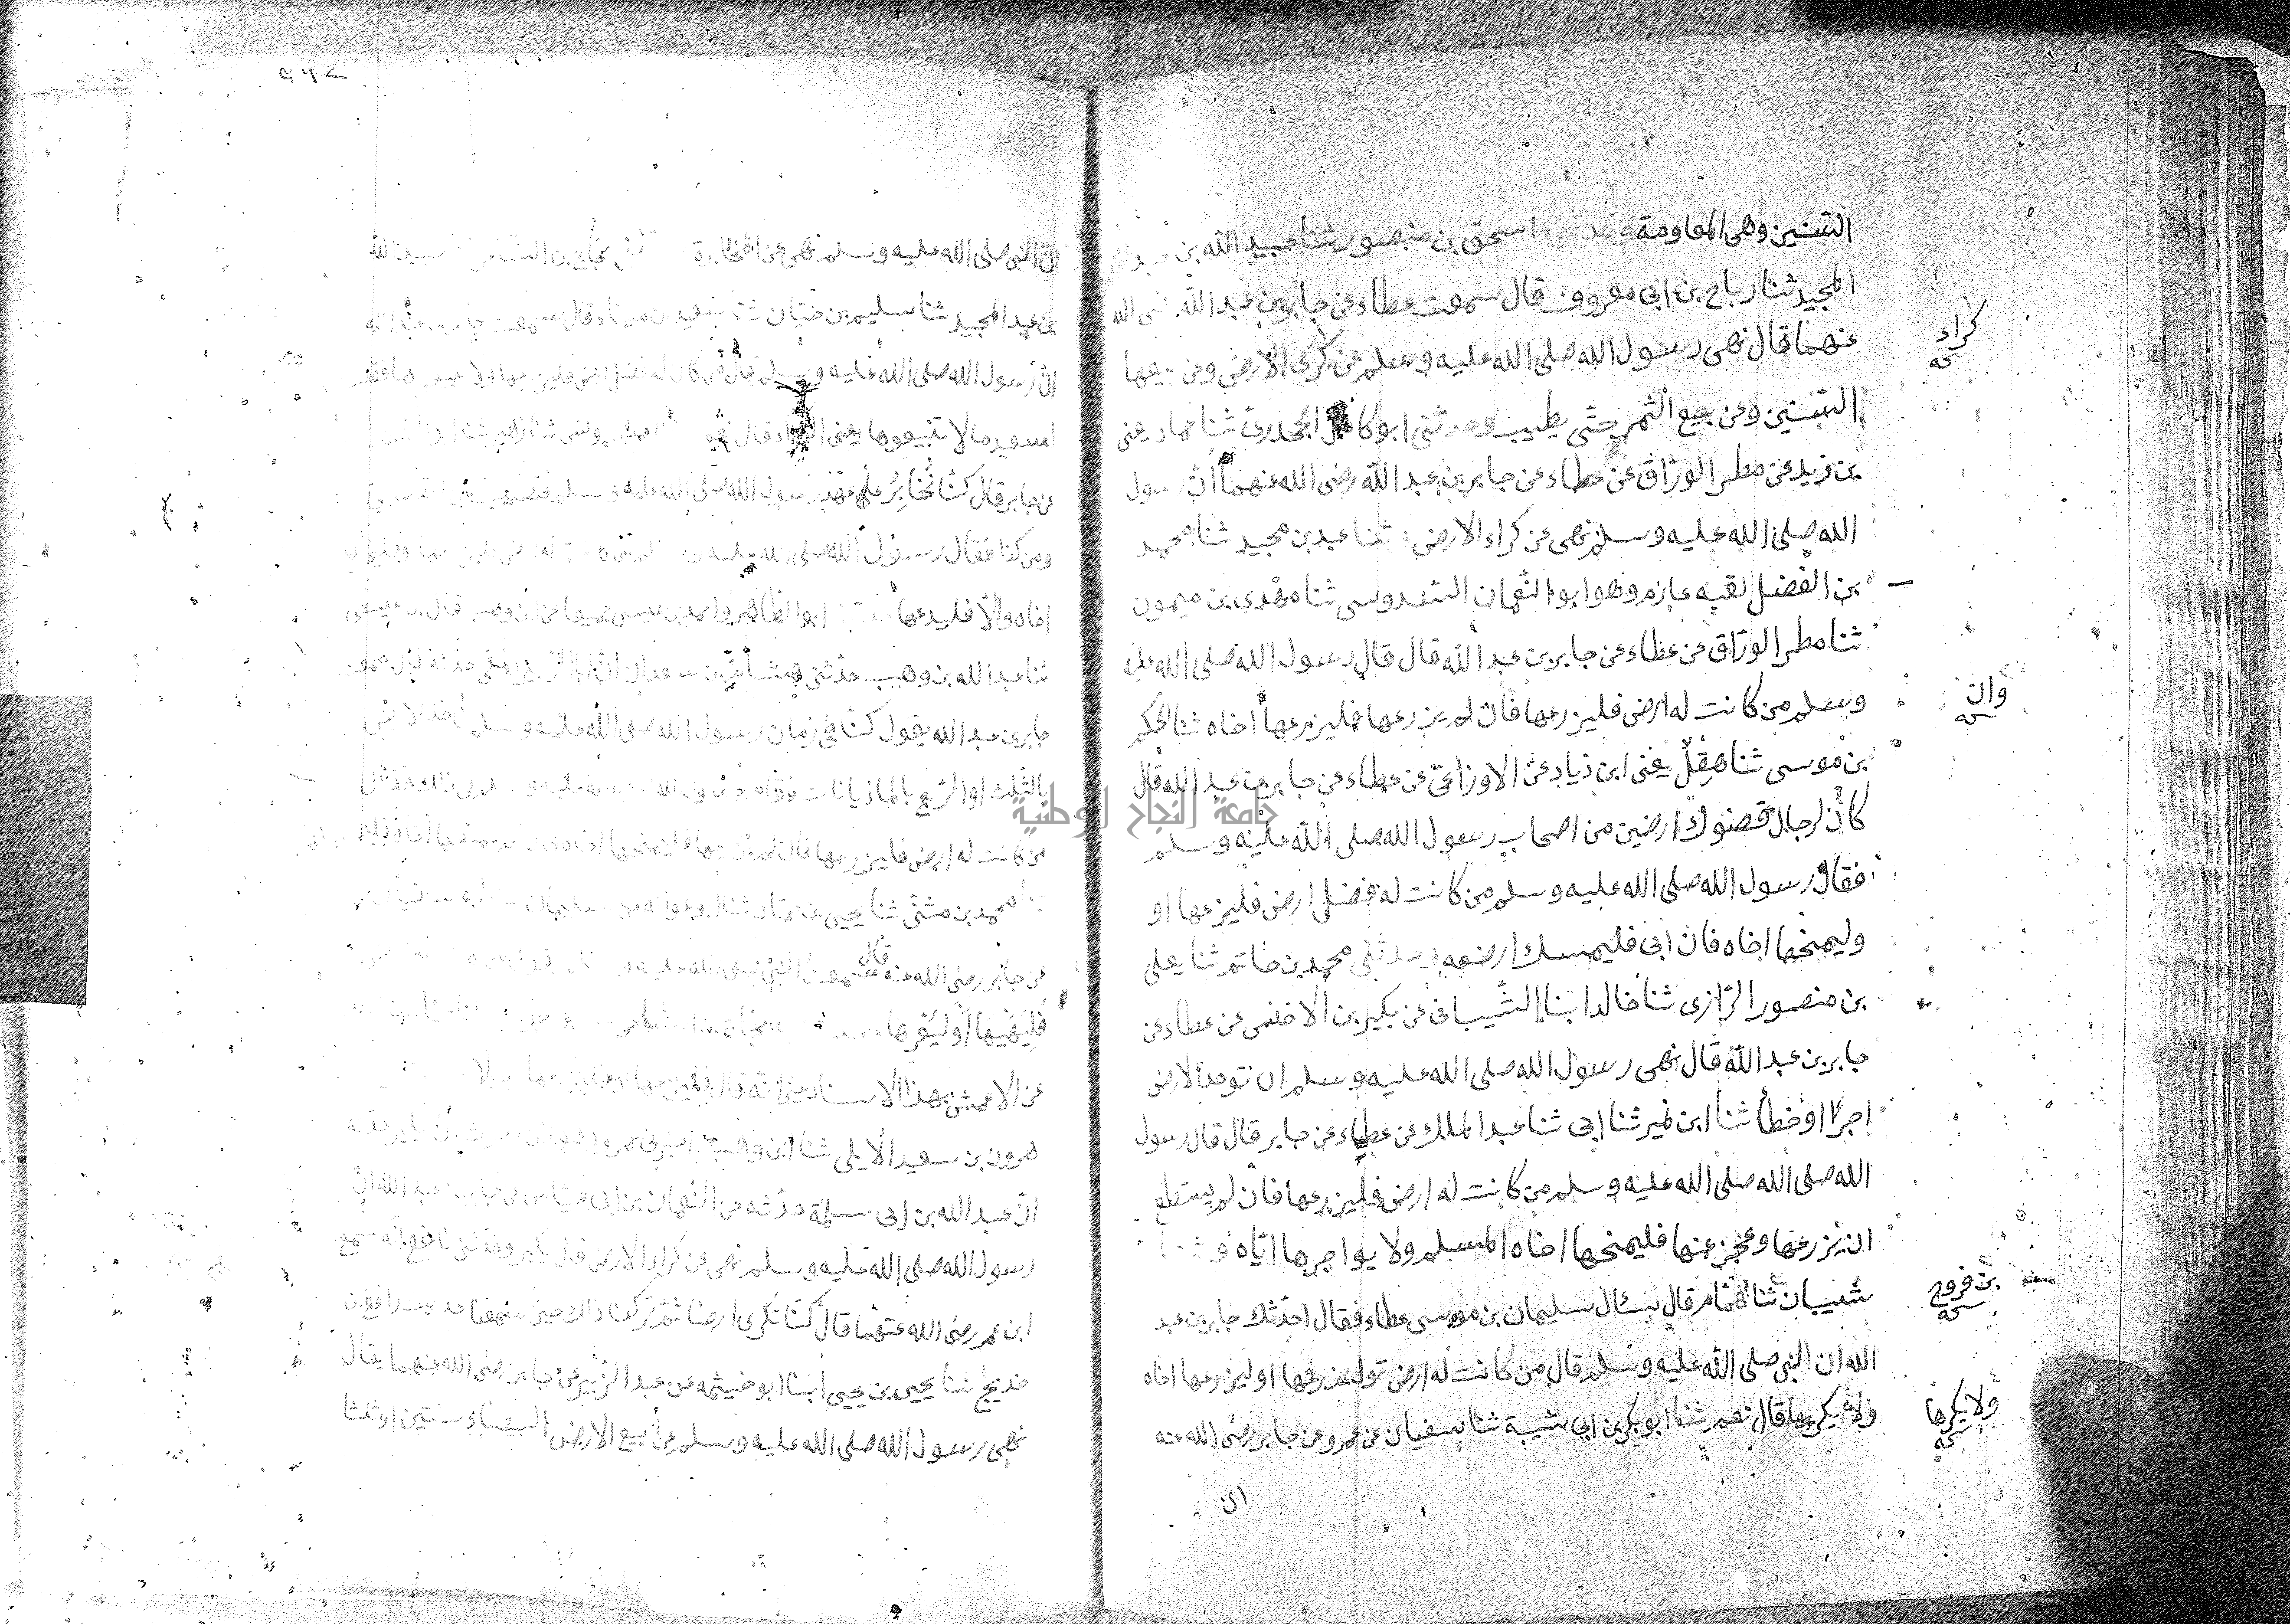 السنين وهي المعاومة وحدثني اسحق بن منصور ثنا عبيد الله بن عبد
المجيد ثنا رباح بن ابي معروف قال سمعت عطاء عن جابر بن عبد الله رضى الله
عنهما قال نهى رسول الله صلى الله عليه وسلم عن كرى الارض وعن بيعها
كراء
السنين وعن بيع الثمر حتى يطيب وحدثني ابو كامل الجحدرى ثنا حماد يعنى
بن زيد عن مطر الوراق عن عطاء عن جابر بن عبد الله رضى الله عنهما ان رسول
الله صلى الله عليه وسلم نهى عن كراء الارض ثنا عبد بن محيد ثنا محمد
بن الفضل لقبه عارم وهو ابو النعمان السدوسى ثنا مهدى بن ميمون
ثنا مطر الوراق عن عطاء عن جابر بن عبد الله قال قال رسول الله صلى الله عليه
وسلم من كانت له ارض فليزرعها فان لم يزرعها فليزرعها اخاه ثنا الحكم
وان
بن موسى ثنا هقل يعنى ابن زياد عن الاوزاعى عن عطاء عن جابر بن عبد الله قال
كان لرجال فضول ارضين من اصحاب رسول الله صلى الله عليه وسلم
فقال رسول الله صلى الله عليه وسلم من كانت له فضل ارض فليزرعها او
وليمنحها اخاه فان ابى فليمسك ارضه وحدثنى محمد بن حاتم ثنا يعلى
بن منصور الرازى ثنا خالد ابنا الشيبانى عن بكير بن الاخنس عن عطاء عن
جابر بن عبد الله قال نهى رسول الله صلى الله عليه وسلم ان توخذ الارض
اجرا او خطأ ثنا ابن نمير ثنا ابى ثنا عبد الملك عن عطاء عن جابر قال قال رسول
الله صلى الله صلى الله عليه وسلم من كانت له ارض فليزرعها فان لم يستطع
ان يزرعها وعجز عنها فليمنحها اخاه المسلم ولا يواجرها اياه وثنا
شيبان ثنا همام قال سئال سليمان بن موسى عطاء فقال احدثك جابر بن عبد
بن فروح
الله ان النبى صلى الله عليه وسلم قال من كانت له ارض فليزرعها او ليزرعها اخاه
ولا يكريها قال نعم ثنا ابو بكر بن ابى شيبة ثنا سفيان عن عمرو عن جابر رضى الله عنه
ولا يكرها
ان
ان النبى صلى الله عليه وسلم نهى عن المخابرة حجاج بن
بن عبد المجيد ثنا سليم بن حيان ثنا سعيد بن ميناء قال سمعت جابر بن عبد الله
ان رسول الله صلى الله عليه وسلم قال من كان له فضل ارض فليزرعها
لسعيد ما لا تبيعوها يعنى قال نعم بن يونس ثنا زهير ثنا
عن جابر قال كنا نخابر على عهد رسول الله صلى الله عليه وسلم فنصيب
ومن كذا فقال رسول الله صلى الله عليه وسلم
اخاه والا فليدعها ابو الطاهر واحمد بن عيسى جميعا عن ابن وهب قال بن عيسى
ثنا عبد الله بن وهب حدثنى هشام بن سعد ان ابا الزبير المكى حدثه قال سمعت
جابر بن عبد الله يقول كنا فى زمان رسول الله صلى الله عليه وسلم نأخذ الارض
بالثلث او الربع بالماذيانات فقام رسول الله صلى الله عليه وسلم فى ذلك فقال
من كانت له ارض فليزرعها فان لم يزرعها فليمنحها اخاه
محمد بن مثنى ثنا يحيى بن حماد ثنا ابو عوانه عن سليمان
عن جابر رضى الله عنه قال سمعت النبى صلى الله عليه
فليهبها او ليعرها
عن الاعمش بهذا الاسناد غير انه قال فليزرعها او فليزرعها رجلا
هرون بن سعيد الايلى ثنا ابن وهب اخبرنى عمرو
ان عبد الله بن ابى سلمة حدثه عن النعمان بن ابى عياش عن جابر بن عبد الله ان
رسول الله صلى الله عليه وسلم نهى عن كراء الارض قال بكير وحدثنى نافع انه سمع
ابن عمر رضى الله عنهما قال كنا نكرى ارضنا ثم تركنا ذلك حين سمعنا حديث رافع بن
خديج ثنا يحيى بن يحيى ابنا ابو خيثمه عن عبد الزبير عن جابر رضى الله عنهما يقال
نهى رسول الله صلى الله عليه وسلم عن بيع الارض البيضاء سنتين او ثلثا
جامعة النجاح الوطنية